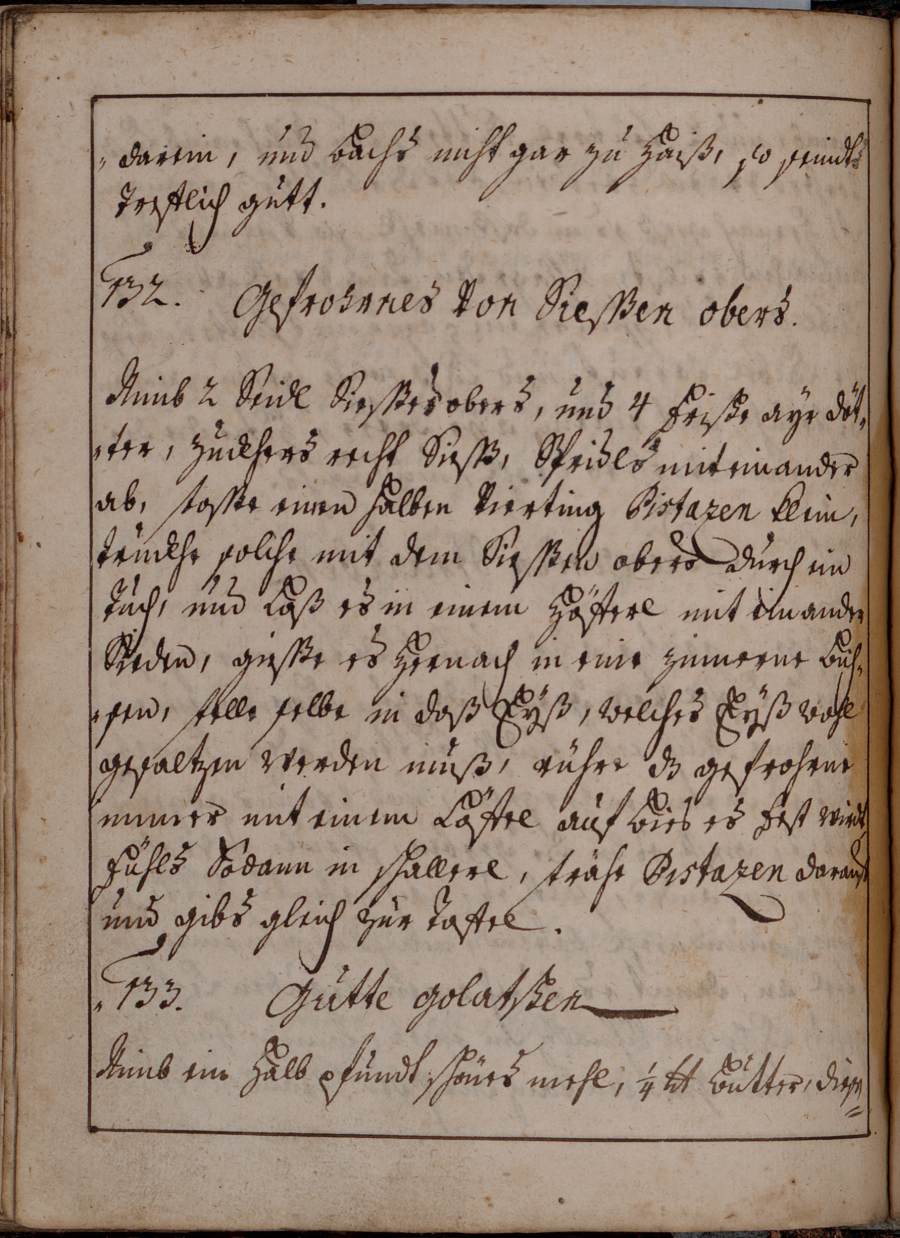 "darein, und bachs nicht gar zu haiß, so seindts
Trefflich gutt.
132. Gefrohrnes Von Siessen obers.
Nimb 2 Seidl Siesses obers, und 4 frische ayr döt„
„ter, zuckhers recht Siess, Spridls miteinander
ab, stosse einen halben Vierting Pistazen klein,
truckhe solche mit dem Siessen obers durch ein
Tuch, und Laß es in einem Häfferl mit einander
Sieden, giesse es hernach in eine zinnerne büch„
„sen, stelle selbe in daß Eyß, welches Eyß wohl
gesaltzen werden muß, rühre dz gefrohrne
immer mit einem Löffel auf bies es fest wirdt
fühls Sodann in schallerl, strähe Pistazen darauf
und gibs gleich zur Taffel.
„133. Gutte golatschen
Nimb ein halb pfundt schönes mehl, ¼ tt butter, diese=